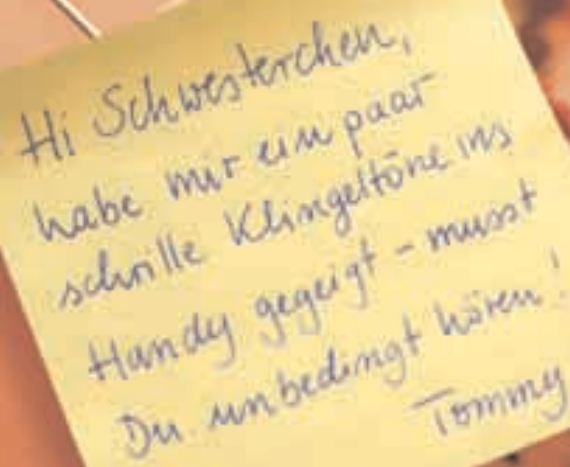 Hi Schwesterchen,
habe mir ein paar
schrille Klingeltöne ins
Handy gegeigt - musst
Du unbedingt hören!
Tommy